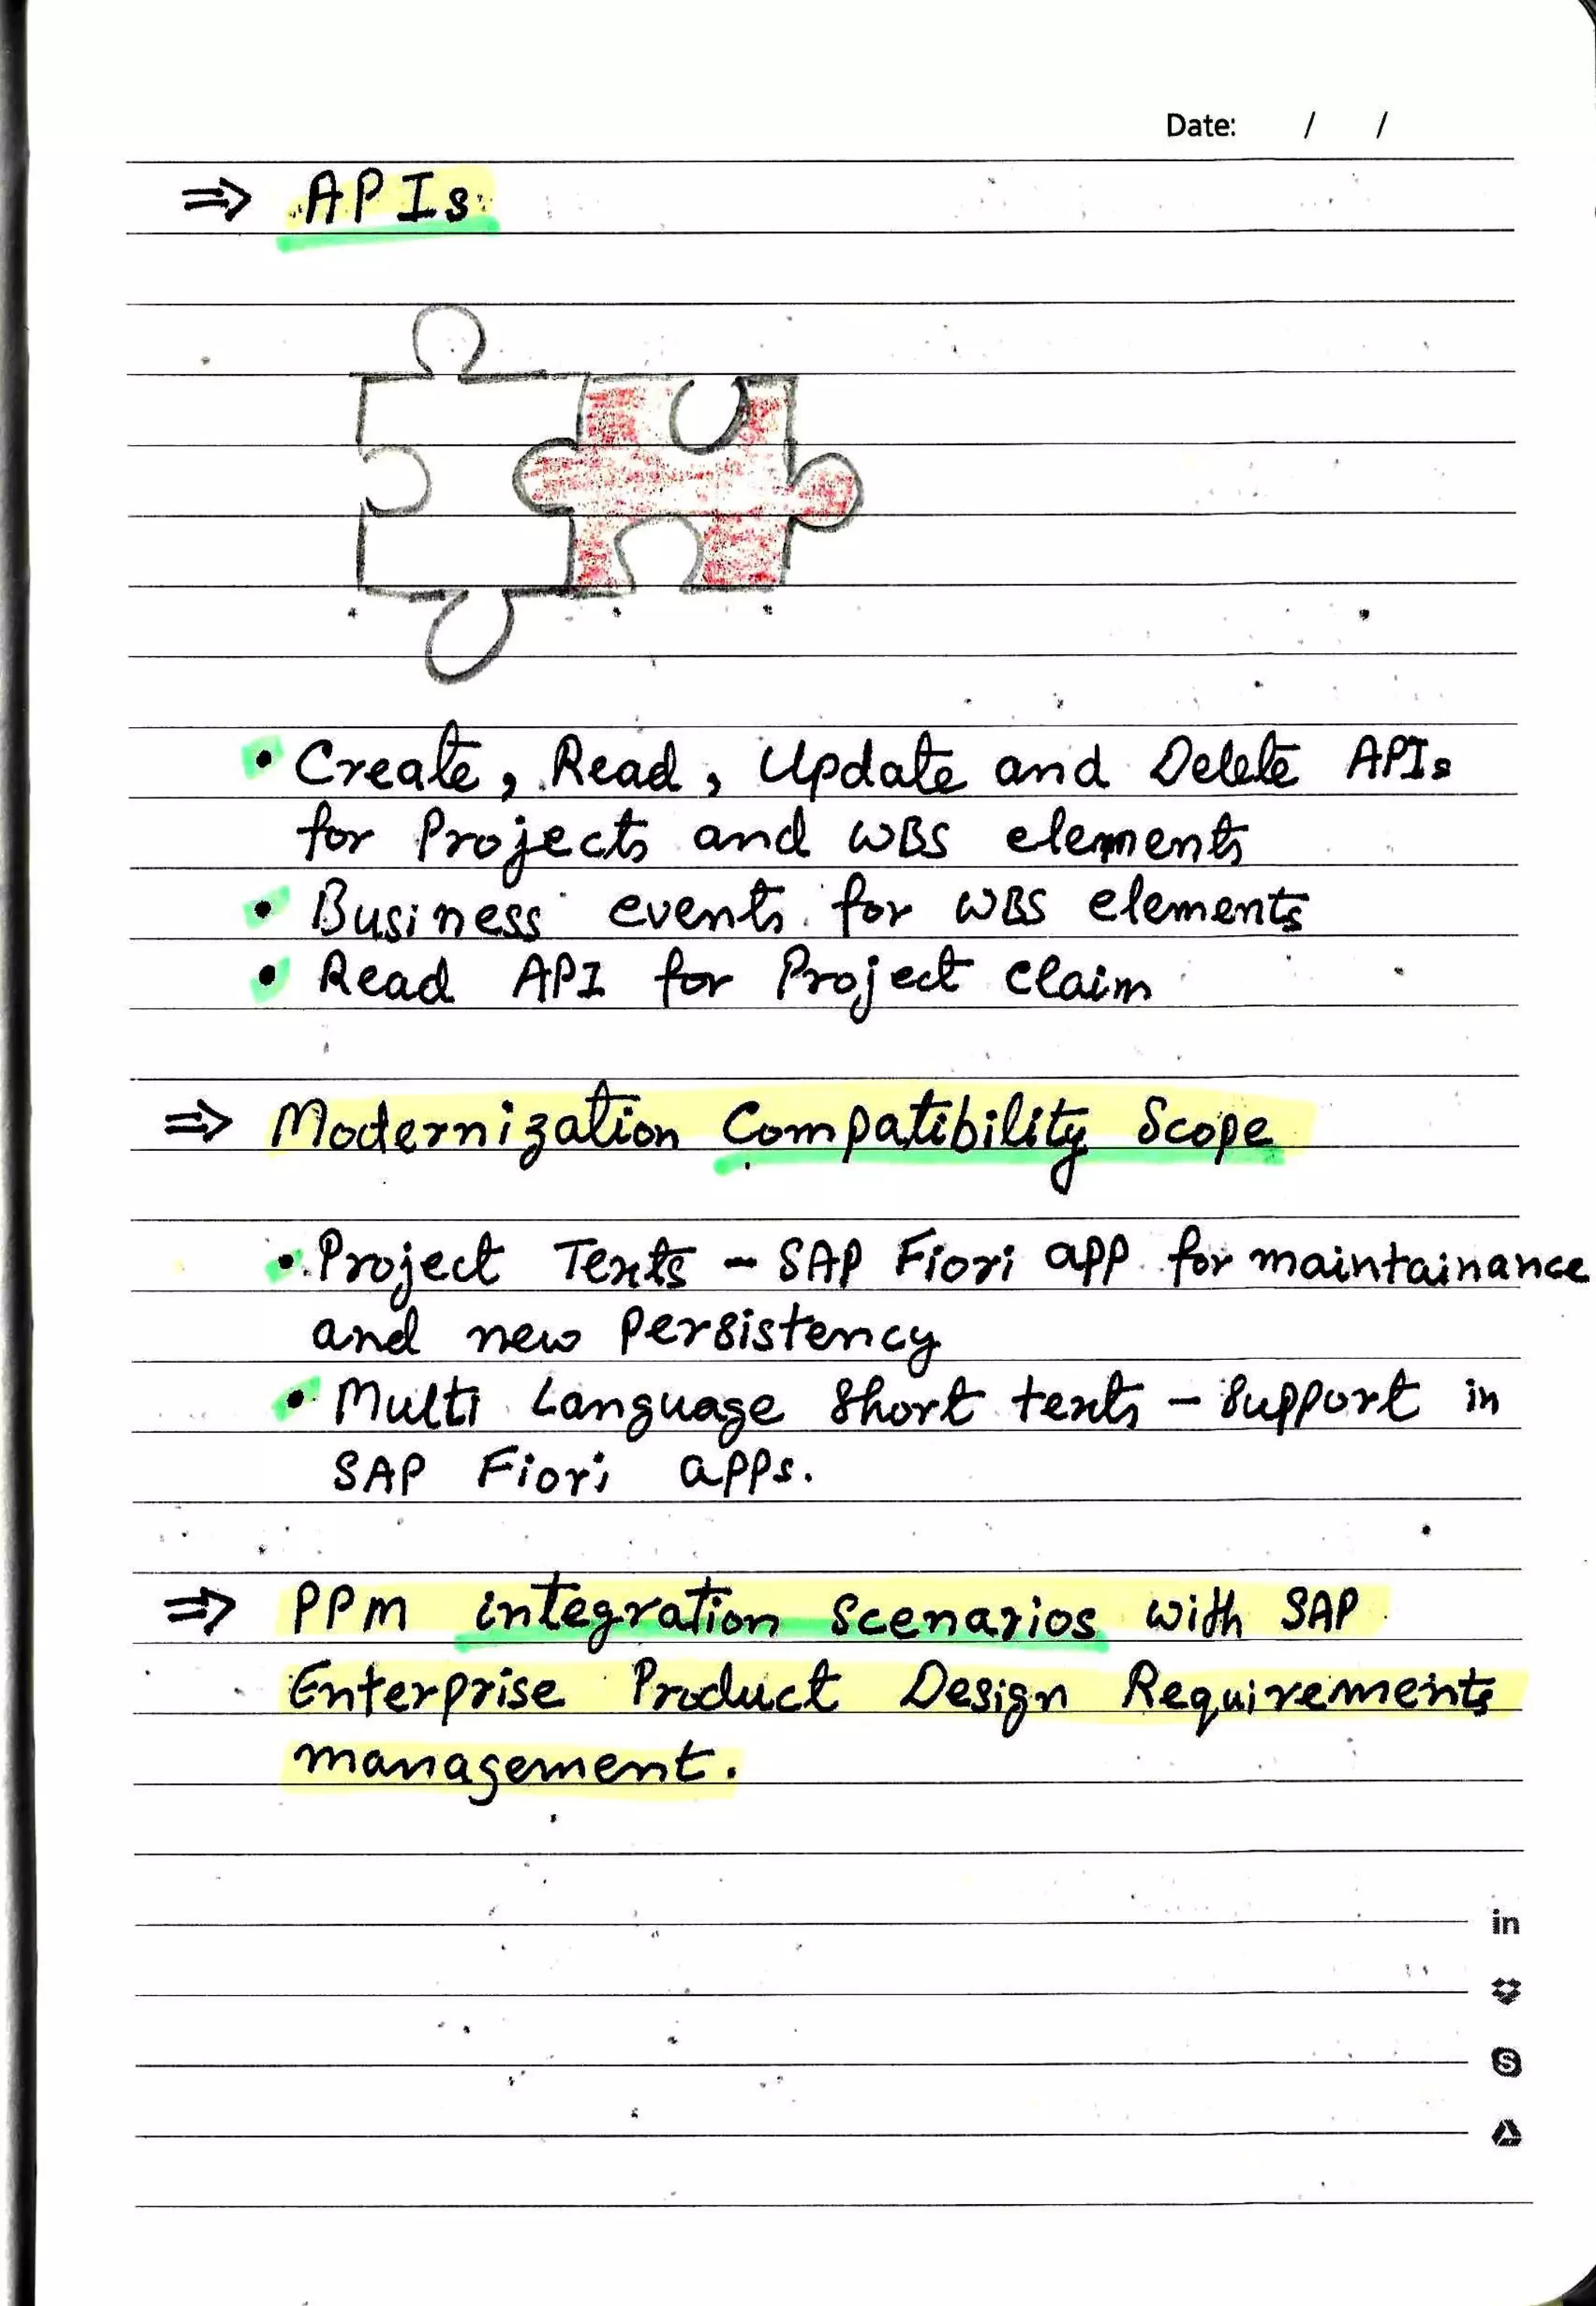 Date: / /
⇒ APIs
• Create, Read, Update and Delete APIs
for Projects and WBS elements
• Business events for WBS elements
• Read API for Project Claim
⇒ Modernization Compatibility Scope
• Project Texts - SAP Fiori app for maintainance
and new Persistency
• Multi Language Short texts - Support in
SAP Fiori apps.
⇒ PPM integration Scenarios with SAP
Enterprise Product Design Requirements
management.
in